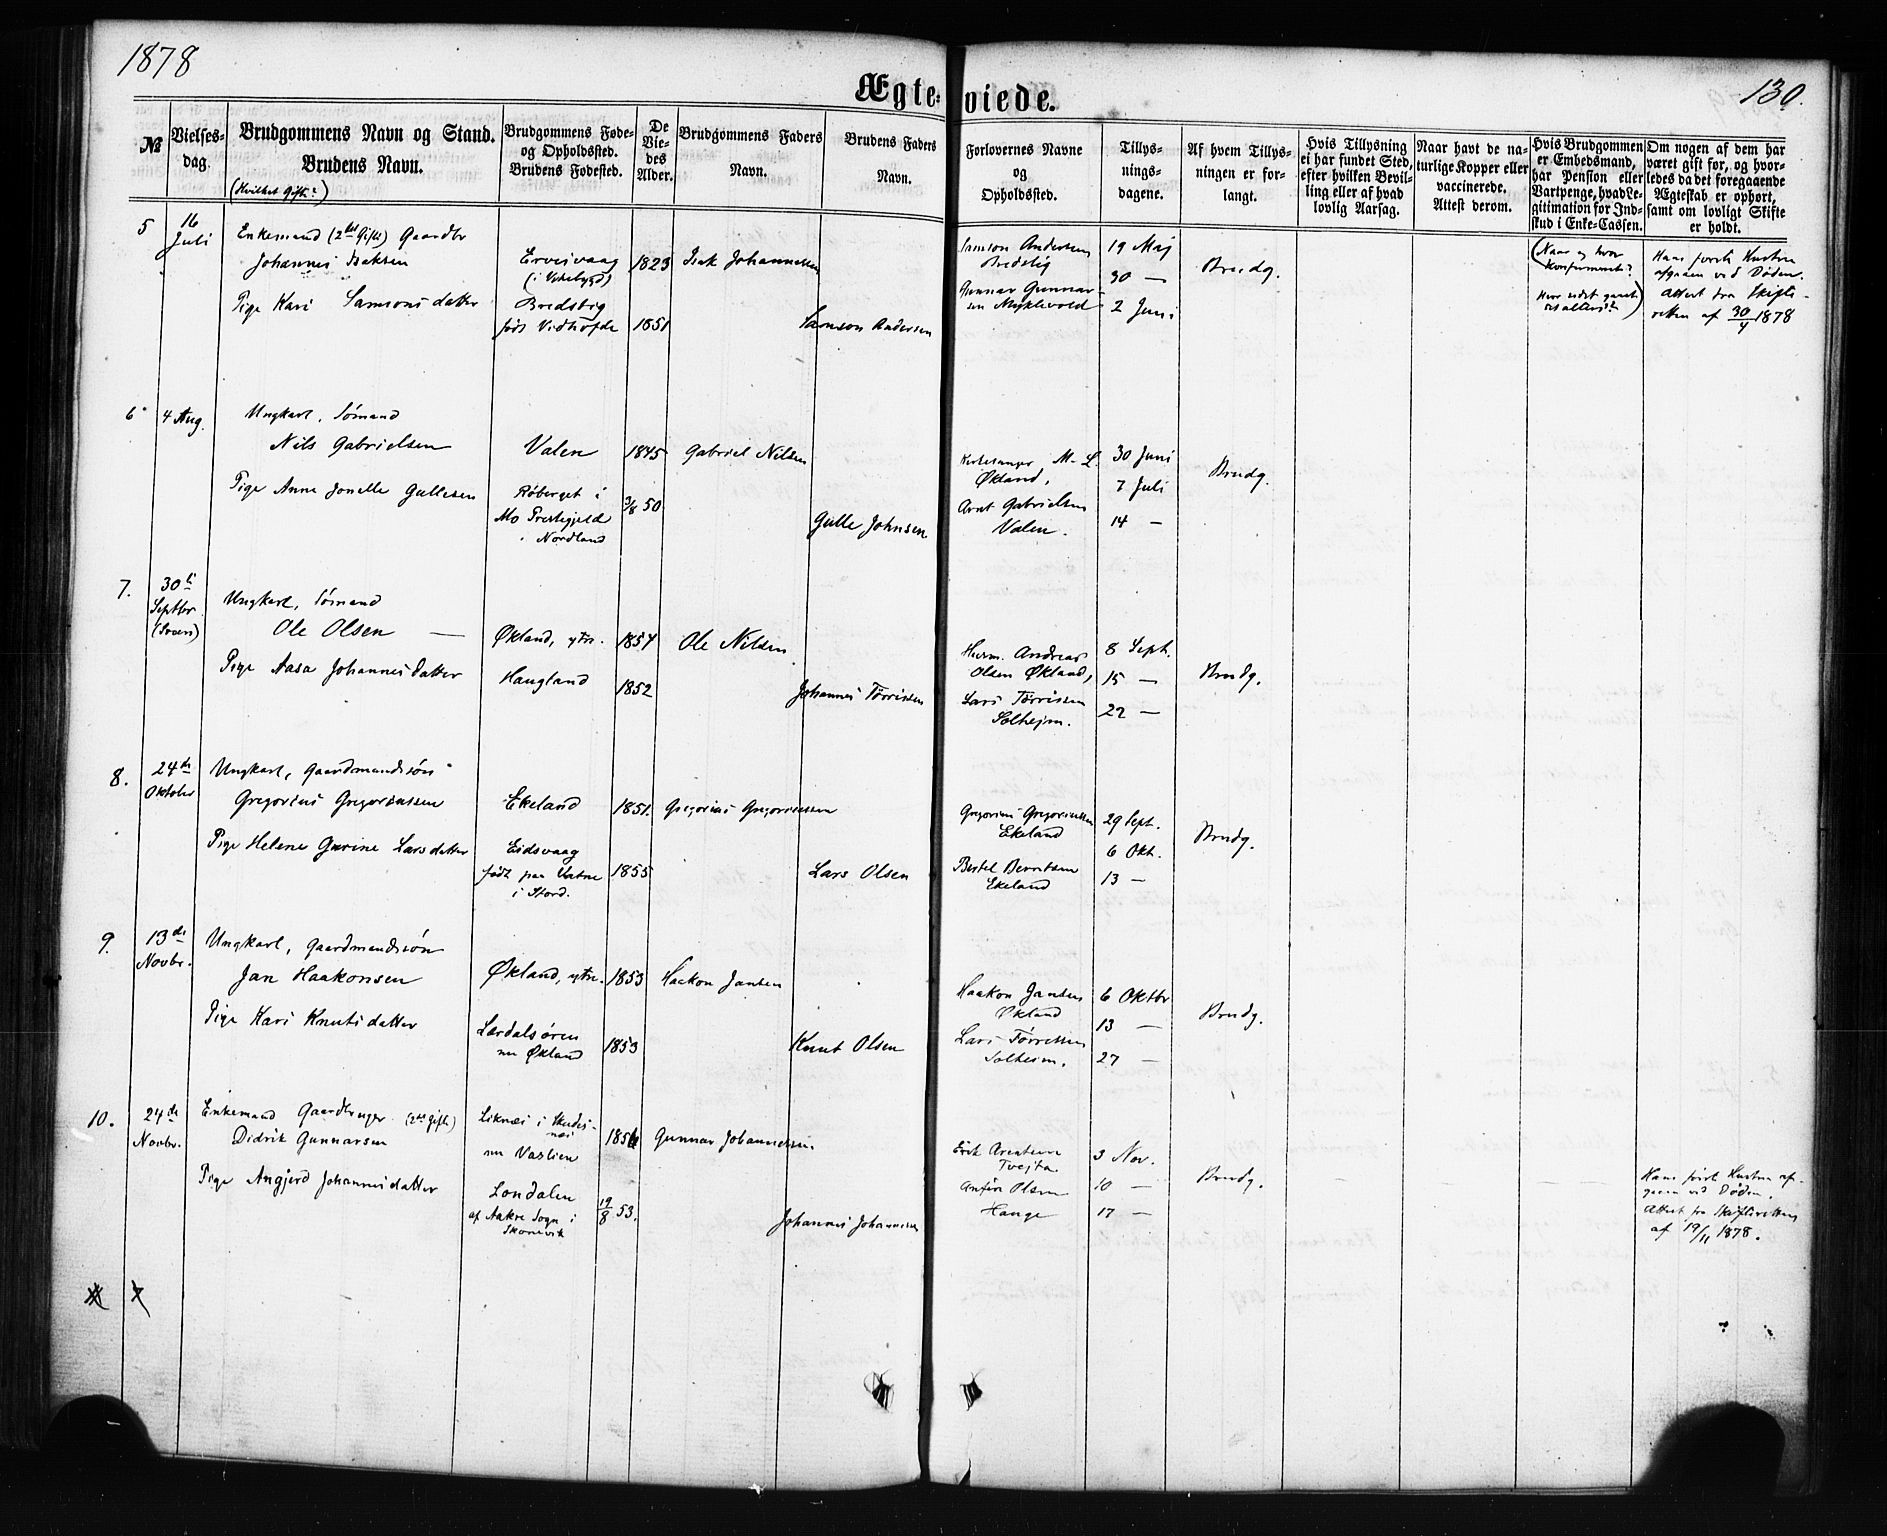 1878
130.
Ægteviede.
№
Vielses-dag.
Brudgommens Navn og Stand.
Brudens Navn.
(Hvilket Gifte?)
Brudgommens Føde- og Opholdssted.
Brudens Fødested.
De Viedes Alder.
Brudgommens Faders Navn.
Brudens Faders Navn.
Forlovernes Navne og Opholdssted.
Tillysningsdagene.
Af hvem Tillysningen er forlangt.
Hvis Tillysning ei har fundet Sted, efter hvilken Bevilling eller af hvad lovlig Aarsag.
Naar havt de naturlige Kopper eller vaccinerede. Attest derom.
Hvis Brudgommen er Embedsmand, har Pension eller Vartpenge, hvad Legitimation for Indskud i Enke-Cassen.
Om nogen af dem har været gift for, og hvorledes da det foregaaende Ægteskab er ophørt, samt om lovligt Skifte er holdt.
5
16 Juli
Enkemand (2det Gifte) Gaardbr
Johannes Isaksen
Pige Kari Samsonsdatter
Ervesvaag
(i Vikebygd)
Bredsbig
født Vidhofde
1823
1851
Isak Johannessen
Samson Andersen
Samson Andersen
Bredslig
Gunnar Gunnarsen Myklevold
19 Maj
30 —
2 Juni
Brudg.
(Naar og hvor
Konfirmeret?
Hans første Hustru
afgaaen ved Døden.
Attest fra Skifteretten af 30/4 1878
6
4 Aug.
Ungkarl, Sømand
Nils Gabrielsen
Pige Anne Jonette Gullesen
Valen
Røberget i
Mo Prestegjeld
i Nordland
1845
3/8 50
Gabriel Nilsen
Gulle Johnsen
Kirkesanger M. L.
Økland,
Arnt Gabrielsen
Valen.
30 Juni
7 Juli
14 —
Brudg.
7.
30te
Septbr.
Ungkarl, Sømand
Ole Olsen —
Pige Aasa Johannesdatter
Økland, ytre.
Haugland
1854
1852
Ole Nilsen
Johannes Tørrissen
Herm. Andreas
Olsen Økland,
Lars Tørrissen
Solheim.
8 Sept.
15 —
22 —
Brudg.
8.
24de
Oktober
Ungkarl, Gaardmandssøn
Gregorius Gregoriussen
Pige Helene Gurine Larsdatter
Ekeland
Eidsvaag
født paa Vatne
i Stord.
1851.
1855
Gregorius Gregoriussen
Lars Olsen
Gregorius Gregoriussen
Ekeland
Bertel Berntsen
Ekeland
29 Sept.
6 Okt.
13 —
Brudg.
9.
13de
Novbr.
Ungkarl, Gaardmandssøn
Jan Haakonsen
Pige Kari Knutsdatter
Økland, ytre.
Lærdalsøren
nu Økland
1853
1853
Haakon Jansen
Knut Olsen
Haakon Jansen
Økland
Lars Tørressen
Solheim.
6 Oktbr
13 —
27 —
Brudg.
10.
24de
Novbr.
Enkemand Gaardbruger (2det Gifte)
Didrik Gunnarsen
Pige Angjerd Johannesdatter
Liknæs i Skudesnæs
nu Vaslien
Londalen
af Aakre Sogn i
Skonevik
19/8 53.
Gunnar Johannessen
Johannes Johannessen
Erik Arentsen
Tvejta.
Anfin Olsen
Hauge
3 Nov.
10 —
17 —
Brudg.
Hans første Hustru afgaaen ved Døden.
Attest fra Skifteretten
af 19/11 1878.